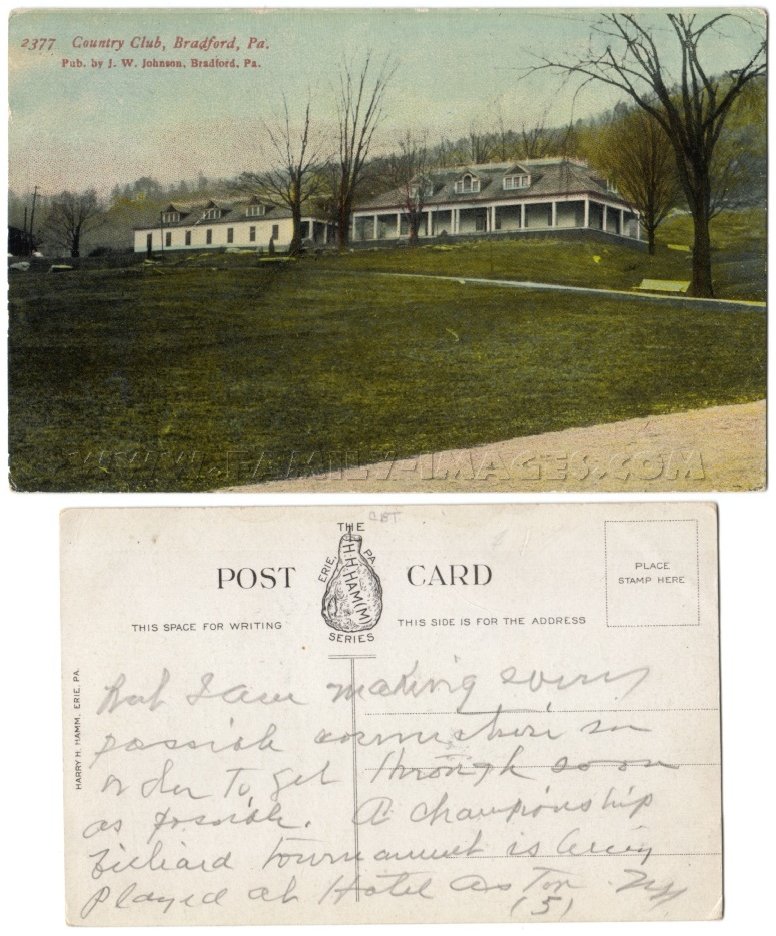 2377 Country Club, Bradford, Pa.
Pub. by J. W. Johnson, Bradford, Pa.
WWW.FAMILY-IMAGES.COM
CBT
THE
ERIE, PA
H-H-HAM(M)
SERIES
POST CARD
PLACE
STAMP HERE
THIS SPACE FOR WRITING
THIS SIDE IS FOR THE ADDRESS
HARRY H. HAMM, ERIE, PA.
but I am making every
possible connection in
order to get through soon
as possible. A championship
billiard tournament is being
played at Hotel Astor
(5)